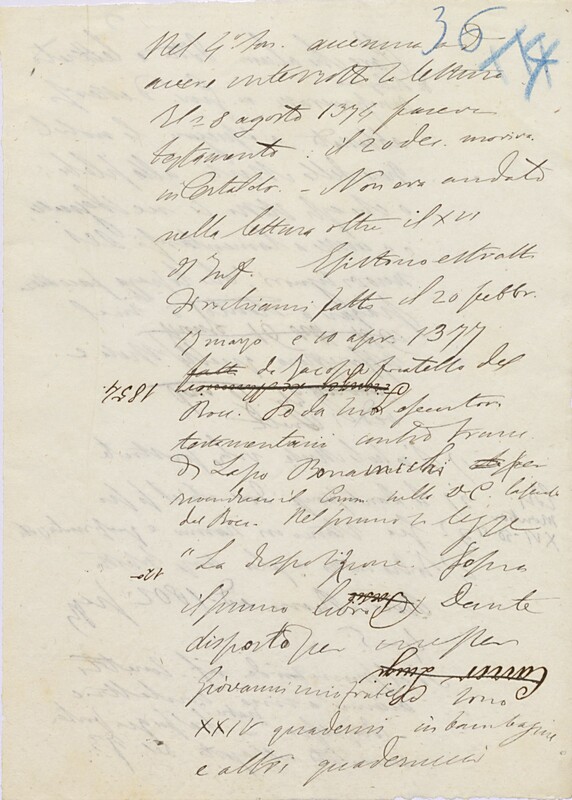 36 XIX
Nel 4° accenna ad
avere interrotto la lettura
Il 28 agosto 1374 faceva
testamento: il 20 dec. moriva
in Certaldo. - Non era andato
nella lettura oltre il XVI
d'Inf. Esistono estratti
di richiami fatti il 20 febbr.
7 marzo e 10 apr. 1377
fatti da Jacopo fratello del
1854.
Bocc. e da esecutori
testamentari contro Franc.
di Lapo Bonamichi per
il Com. sulla D.C.
del Bocc. Nel primo si legge
"La dispositione sopra
120
il primo libro di Dante
disposto per messer
Giovanni mio fratello sono
XXIV quaderni in bambagine
e altri quadernucci